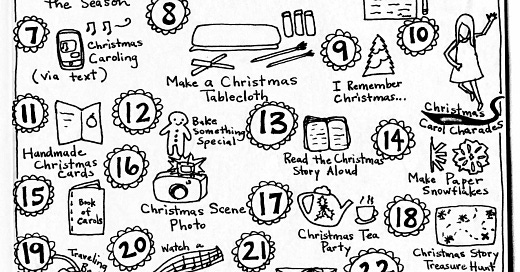 the Season
7
Christmas
Caroling
(via text)
8
Make a Christmas
Tablecloth
9
I Remember
Christmas...
10
Christmas
Carol Charades
11
Handmade
Christmas
Cards
12
Bake
Something
Special
13
Read the Christmas
Story Aloud
14
Make Paper
Snowflakes
15
Book
of
Carols
16
Christmas Scene
Photo
17
Christmas Tea
Party
18
Christmas Story
Treasure Hunt
19
Traveling
20
Watch a
21
22